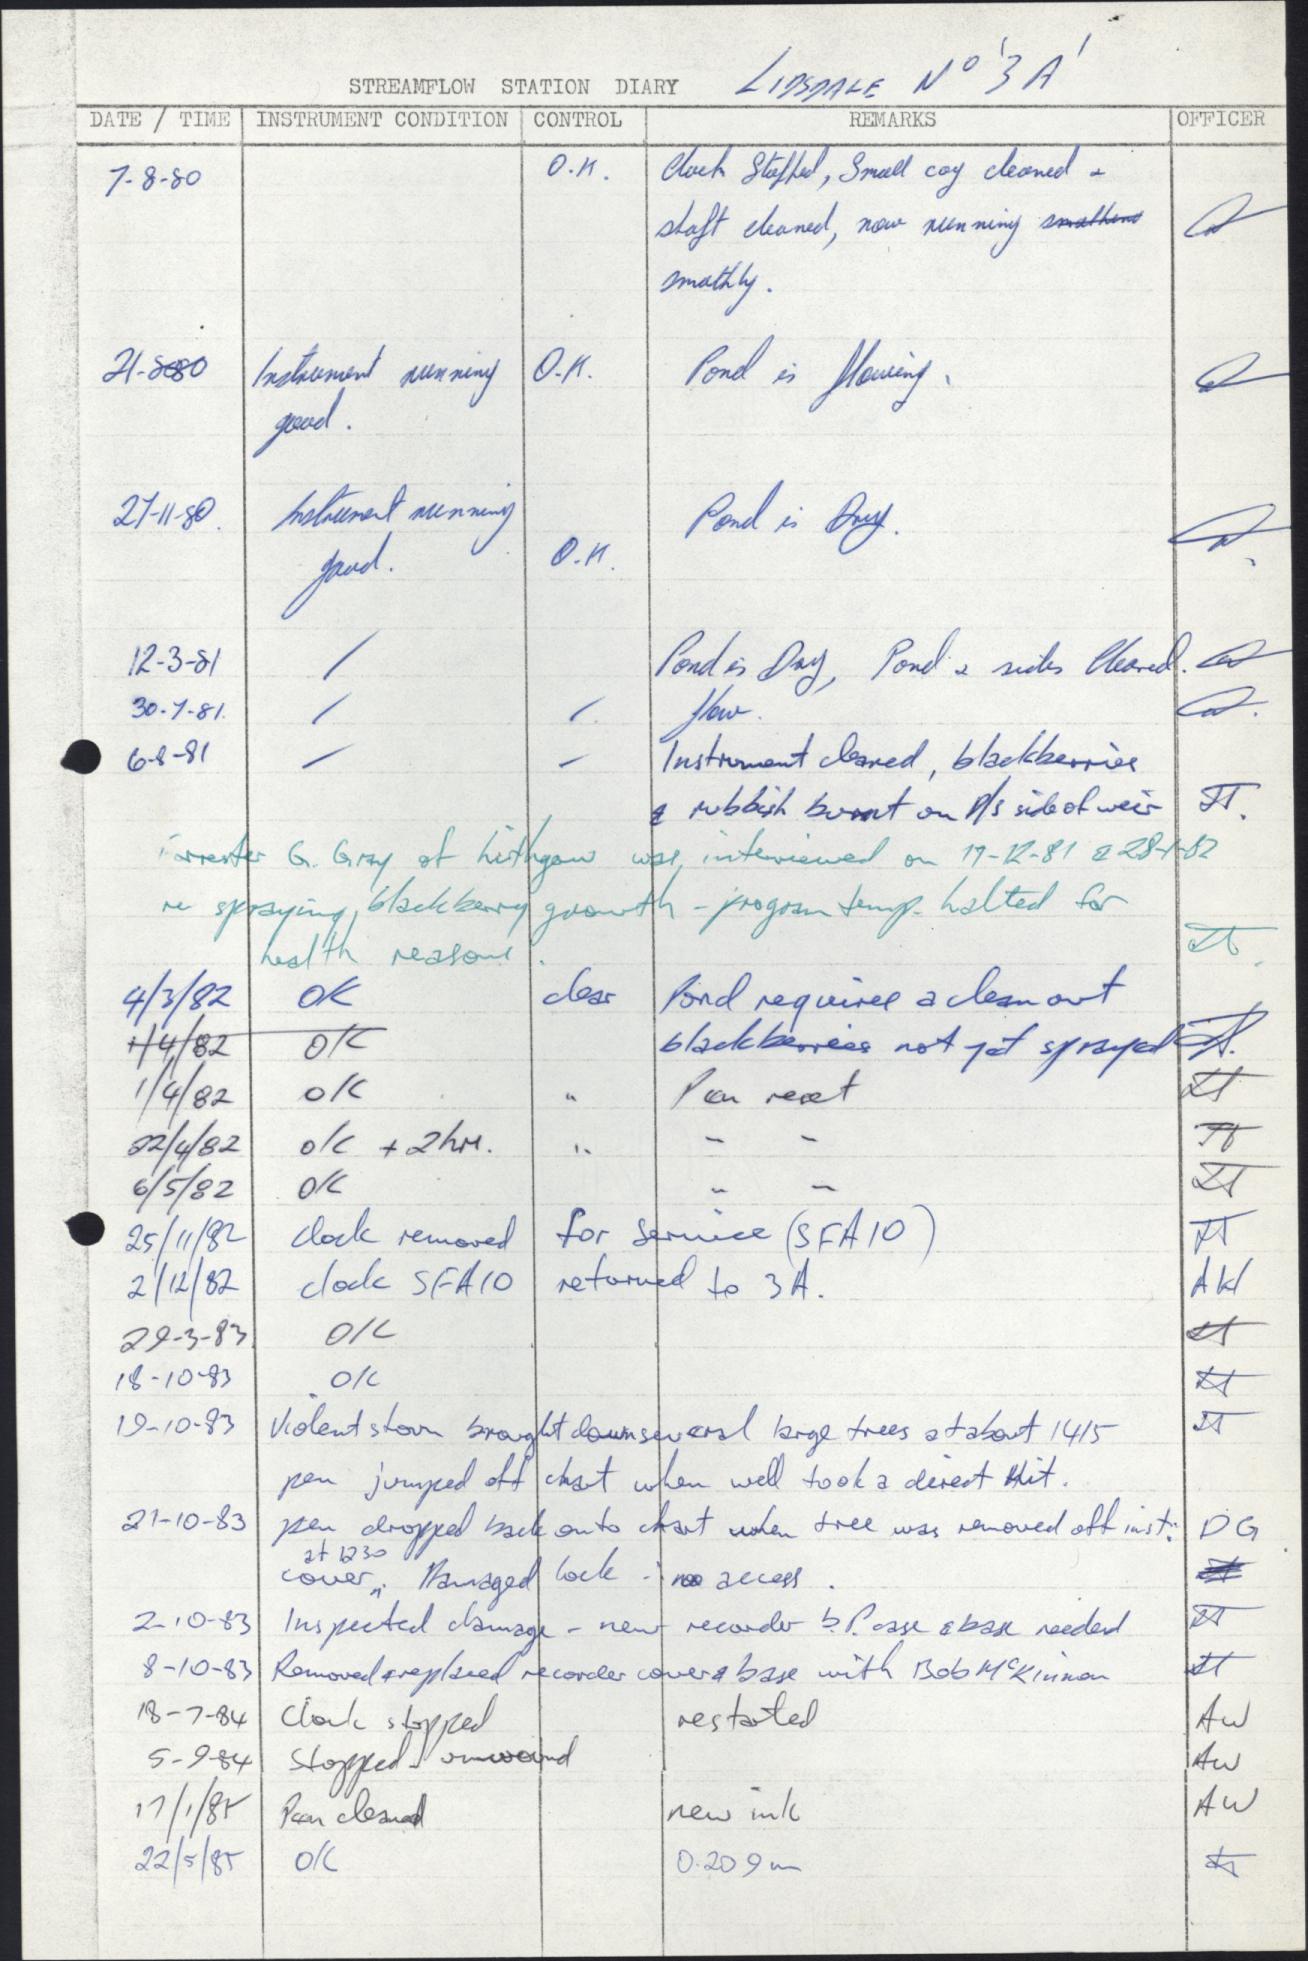 STREAMFLOW STATION DIARY LIDSDALE Nº '3A'
DATE / TIME INSTRUMENT CONDITION CONTROL REMARKS OFFICER
7-8-80 O.K. Clock Stopped, Small cog cleaned &
shaft cleaned, now running
smothly.
21-8-80 Instrument running O.K. Pond is flowing.
good.
27-11-80. Instrument running Pond is Dry.
good. O.K.
12-3-81 / Pond is Dry, Pond & sides Cleared.
30-7-81. / / flow.
6-8-81 / / Instrument cleared, blackberries
& rubbish burnt on D/s side of weir JT.
Forrester G. Gray of Lithgow was interviewed on 17-12-81 & 28-1-82
re spraying blackberry growth - program temp. halted for
health reasons. JT.
4/3/82 OK clear Pond requires a clean out
1/4/82 OK blackberries not yet sprayed JT.
1/4/82 OK " Pen reset JT
22/4/82 OK + 2hr. " " " JT
6/5/82 OK " " JT
25/11/82 clock removed for service (SFA10) JT
2/12/82 clock SFA10 returned to 3A. AW
29-3-83 OK JT
18-10-83 OK JT
19-10-83 Violent storm brought down several large trees at about 1415 JT
pen jumped off chart when well took a direct hit.
21-10-83 pen dropped back onto chart when tree was removed off inst: DG
at 1230
cover,, Damaged lock ∴ no access.
2-10-83 Inspected damage - new recorder b.P. case & base needed JT
8-10-83 Removed & replaced recorder cover & base with Bob McKinnon JT
18-7-84 Clock stopped restarted AW
5-9-84 Stopped unwound AW
17/1/85 Pen cleaned new ink AW
22/5/85 OK 0.209m JT